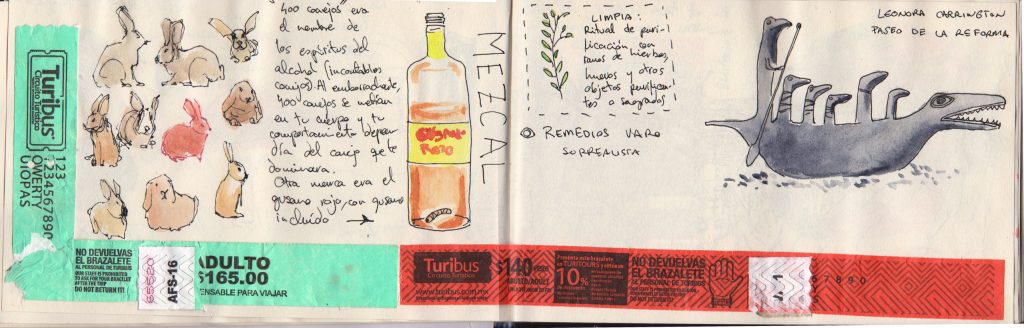 "400 conejos" era
el nombre de
los espíritus del
alcohol (incontables
conejos). Al emborracharte,
400 conejos se metían
en tu cuerpo y tu
comportamiento depen-
día del conejo que te
dominara.
Otra marca era el
gusano rojo, con gusano
incluido →
MEZCAL
GUSANO
ROJO
LIMPIA:
Ritual de puri-
ficación con
ramos de hierbas,
huevos y otros
objetos purifican-
tes o sagrados
REMEDIOS VARO
SURREALISTA
LEONORA CARRINGTON
PASEO DE LA REFORMA
Turibus
Circuito Turístico
123
1234567890
QWERTY
UIOPAS
NO DEVUELVAS
EL BRAZALETE
AL PERSONAL DE TURIBUS
OUR STAFF IS PROHIBITED
TO ASK FOR YOUR BRACELET
AFTER THE TRIP
DO NOT RETURN IT!
65520
AFS-16
ADULTO
$165.00
ENSABLE PARA VIAJAR
Turibus
Circuito Turístico
www.turibus.com.mx
$140 PESOS
ADULTO/ADULT
Presenta este brazalete
en TURITOURS y obtén un
10%
NO DEVUELVAS
EL BRAZALETE
AL PERSONAL DE TURIBUS
DO NOT RETURN IT!
67890